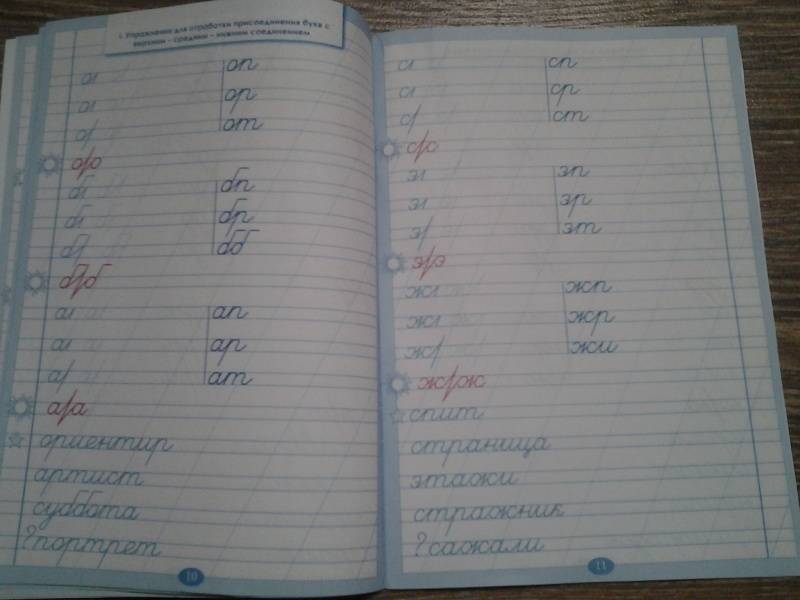 1. Упражнения для отработки присоединения букв с
верхним – средним – нижним соединением
оп
ор
от
о/о
бп
бр
бб
б/б
ап
ар
ат
а/а
ориентир
артист
суббота
?портрет
10
сп
ср
ст
с/с
зп
зр
зт
э/э
жп
жр
жи
ж/ж
спит
страница
этажи
стражник
?сажали
11